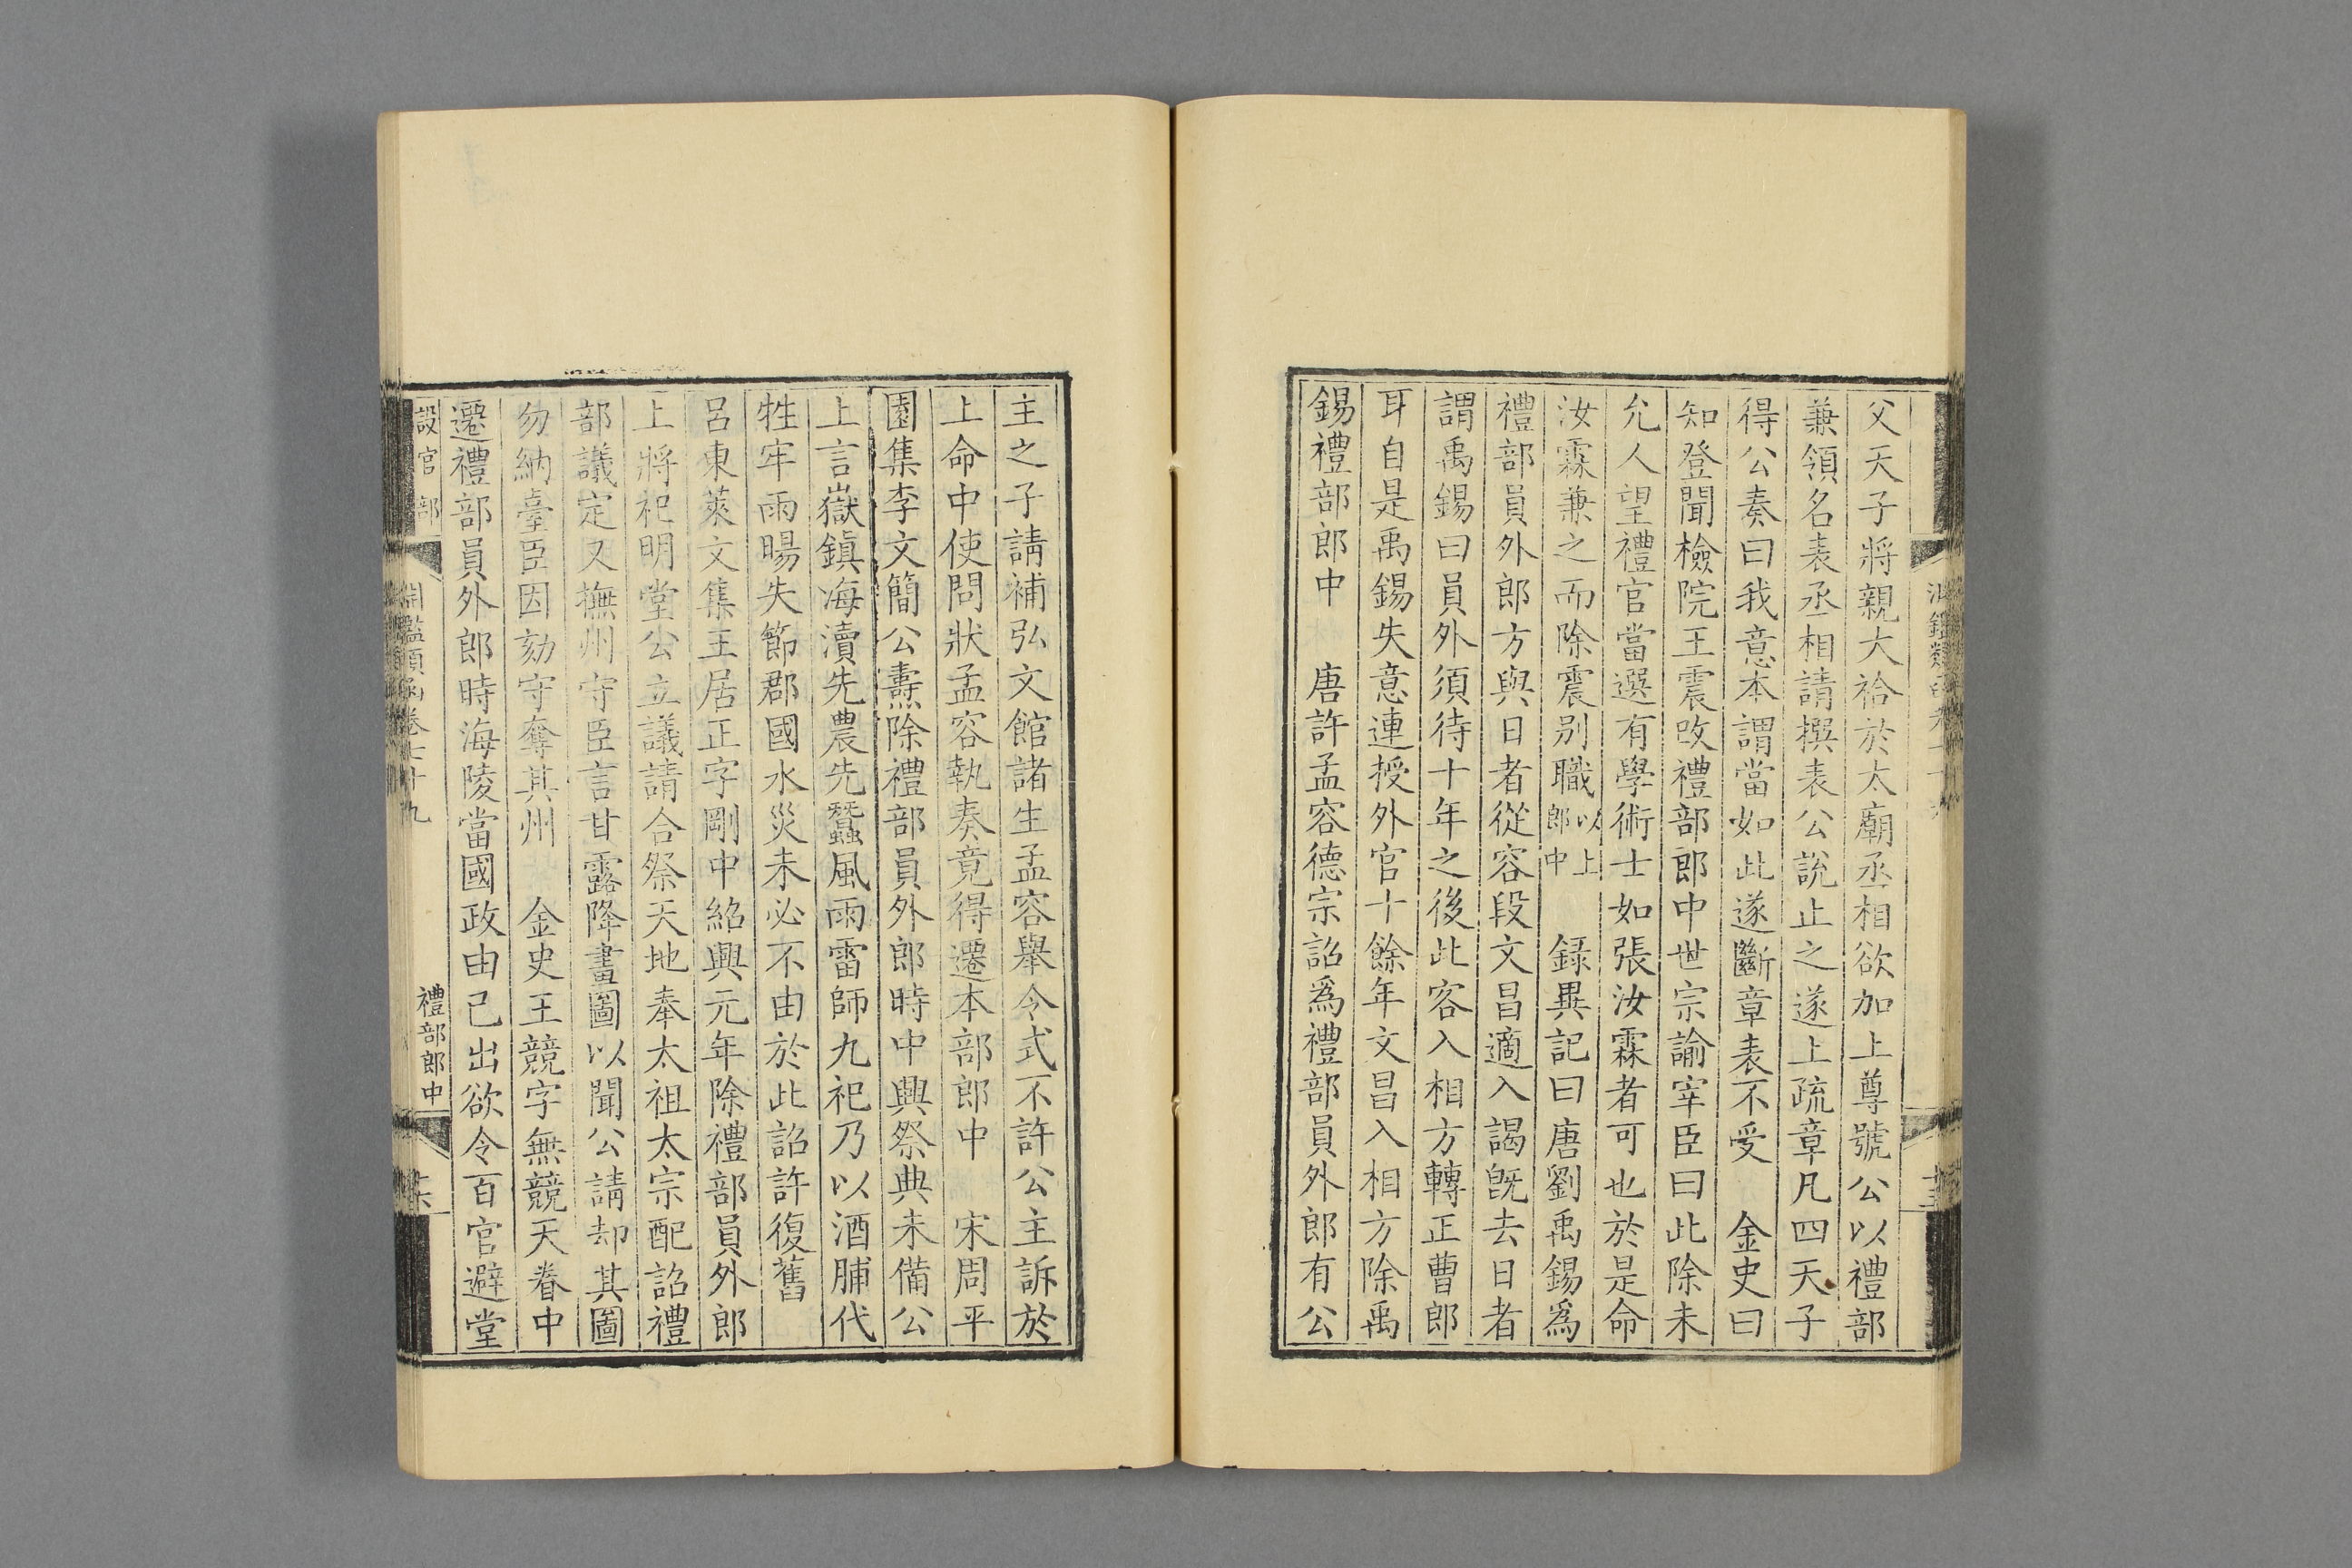 父天子將親大祫於太廟丞相欲加上尊號公以禮部
兼領名表丞相請撰表公說止之遂上疏章凡四天子
得公奏曰我意本謂當如此遂斷章表不受　金史曰
知登聞檢院王震改禮部郎中世宗諭宰臣曰此除未
允人望禮官當選有學術士如張汝霖者可也於是命
汝霖兼之而除震別職以上郎中　錄異記曰唐劉禹錫爲
禮部員外郎方與日者從容段文昌適入謁旣去日者
謂禹錫曰員外須待十年之後此客入相方轉正曹郎
耳自是禹錫失意連授外官十餘年文昌入相方除禹
錫禮部郎中　唐許孟容德宗詔爲禮部員外郎有公
主之子請補弘文館諸生孟容舉令式不許公主訴於
上命中使問狀孟容執奏竟得遷本部郎中　宋周平
園集李文簡公燾除禮部員外郎時中興祭典未備公
上言嶽鎮海瀆先農先蠶風雨雷師九祀乃以酒脯代
牲牢雨暘失節郡國水災未必不由於此詔許復舊
呂東萊文集王居正字剛中紹興元年除禮部員外郎
上將祀明堂公立議請合祭天地奉太祖太宗配詔禮
部議定又撫州守臣言甘露降畫圖以聞公請却其圖
勿納臺臣因劾守奪其州　金史王競字無競天眷中
遷禮部員外郎時海陵當國政由己出欲令百官避堂
設官部
淵鑑類函卷七十九
禮部郎中